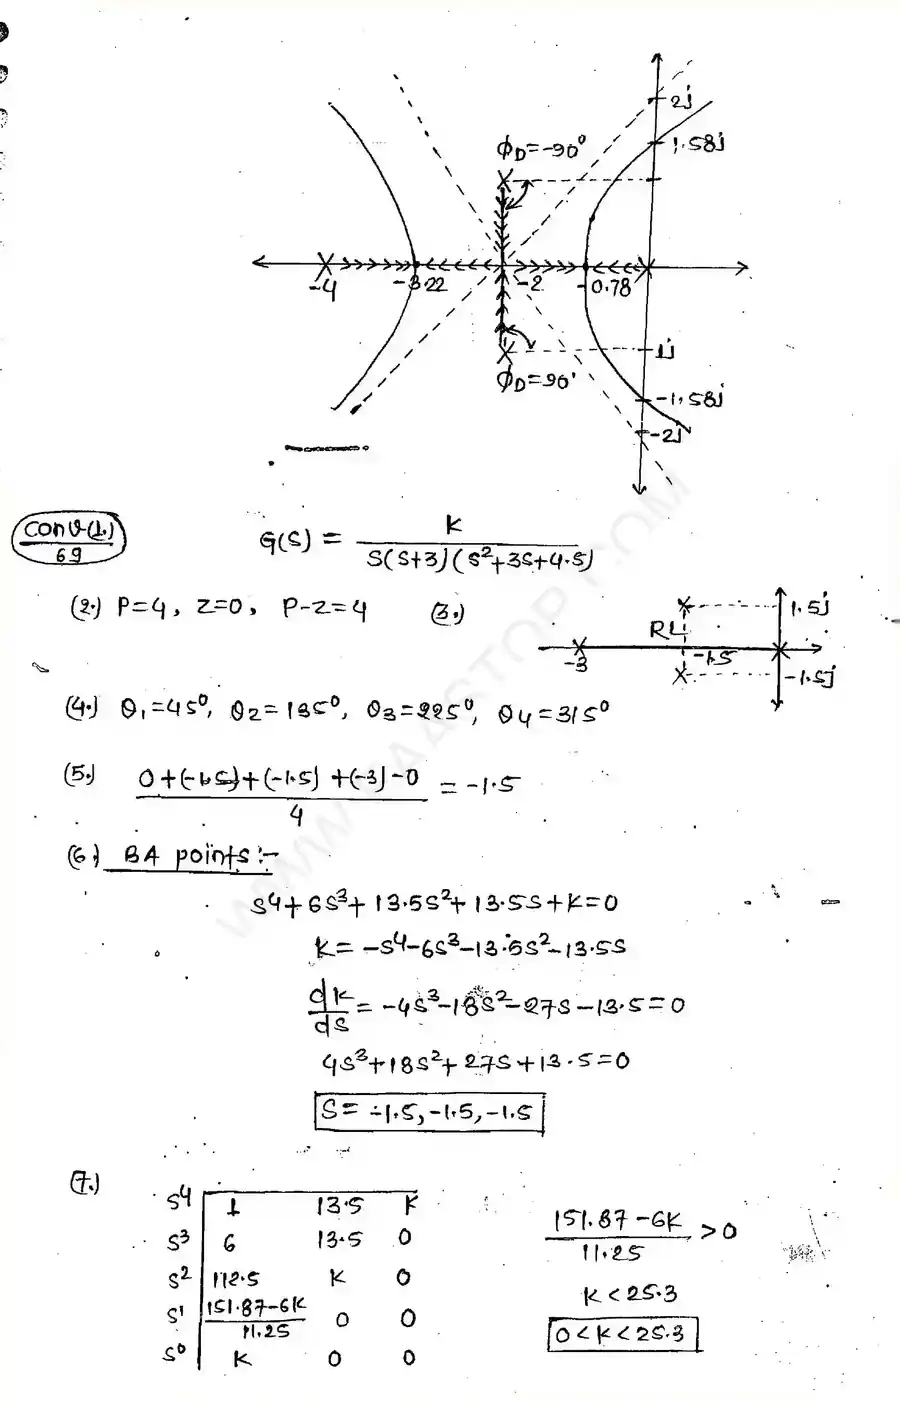 2j
ϕD=-90°
1.58j
-4
-3.22
-2
-0.78
1j
ϕD=90°
-1.58j
-2j
Conv(1.)/69
G(s) = K / s(s+3)(s²+3s+4.5)
(2.) P=4, Z=0, P-Z=4 (3.)
1.5j
RL
-3
-1.5
-1.5j
(4.) θ1=45°, θ2=135°, θ3=225°, θ4=315°
(5.) 0+(-1.5)+(-1.5)+(-3)-0 / 4 = -1.5
(6.) BA points:-
s4+6s3+13.5s2+13.5s+K=0
K=-s4-6s3-13.5s2-13.5s
dk/ds=-4s3-18s2-27s-13.5=0
4s3+18s2+27s+13.5=0
s=-1.5,-1.5,-1.5
(7.)
s4 1 13.5 K
s3 6 13.5 0
s2 112.5 K 0
s1 151.87-6K/11.25 0 0
s0 K 0 0
151.87-6K/11.25 >0
K<25.3
0<K<25.3